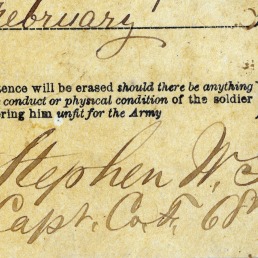 February
tence will be erased should there be anything
conduct or physical condition of the soldier
ring him unfit for the Army
Stephen W.
Capt. Co. F, 68